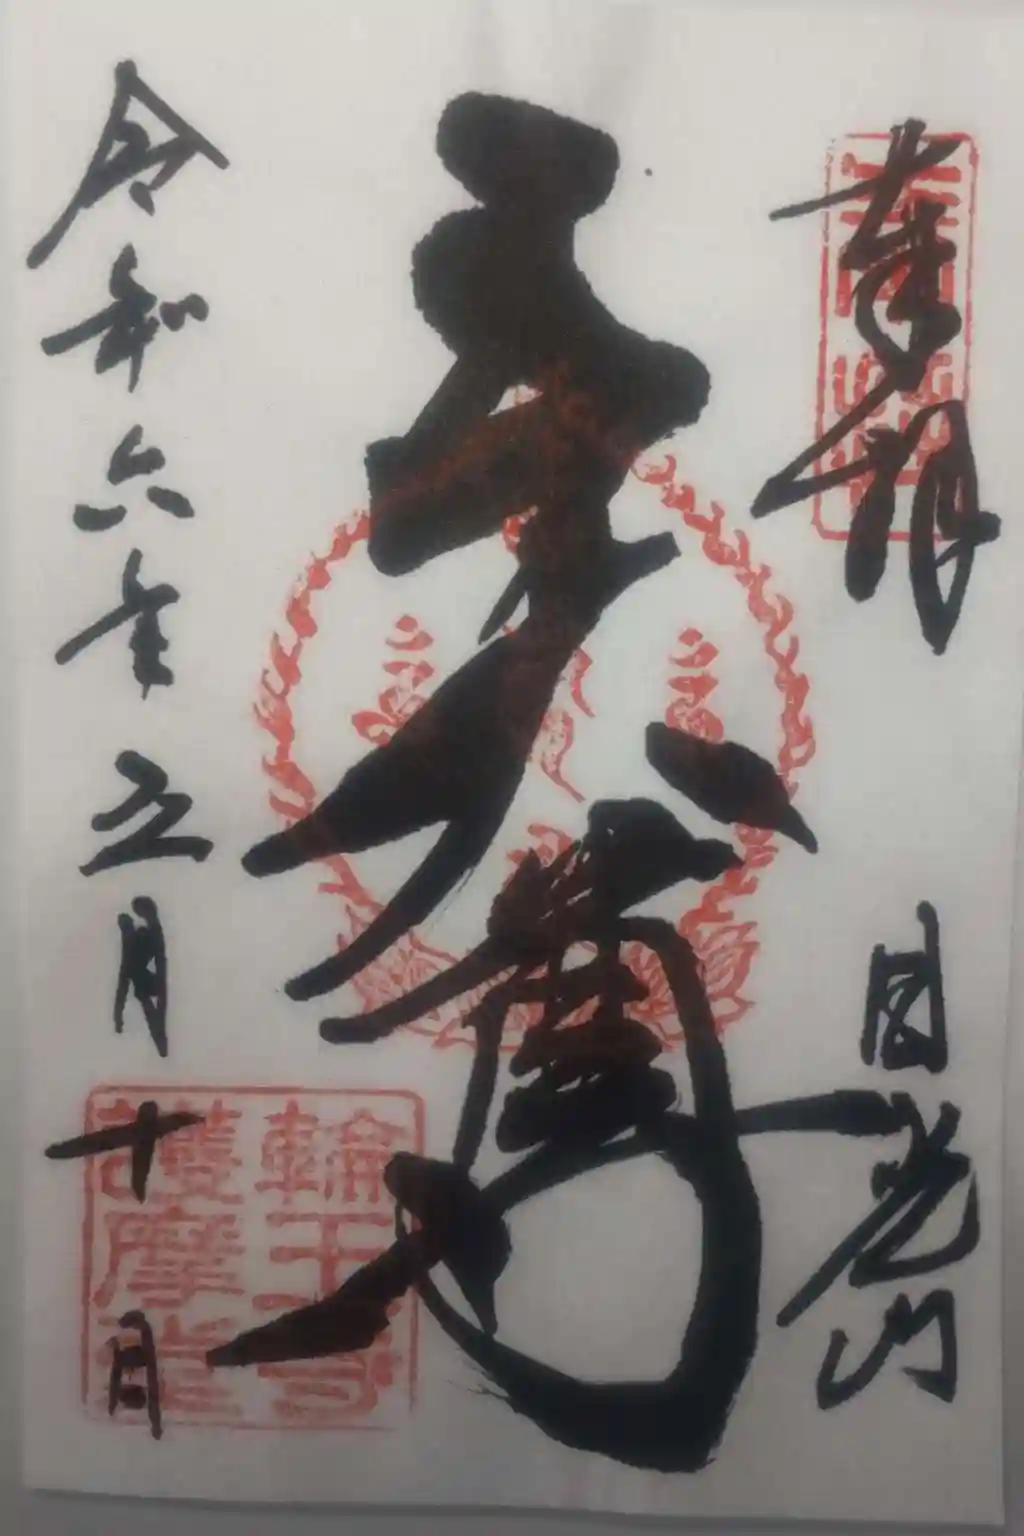 奉拝
日光山
五大尊
輪王寺
護摩堂
令和六年五月十日